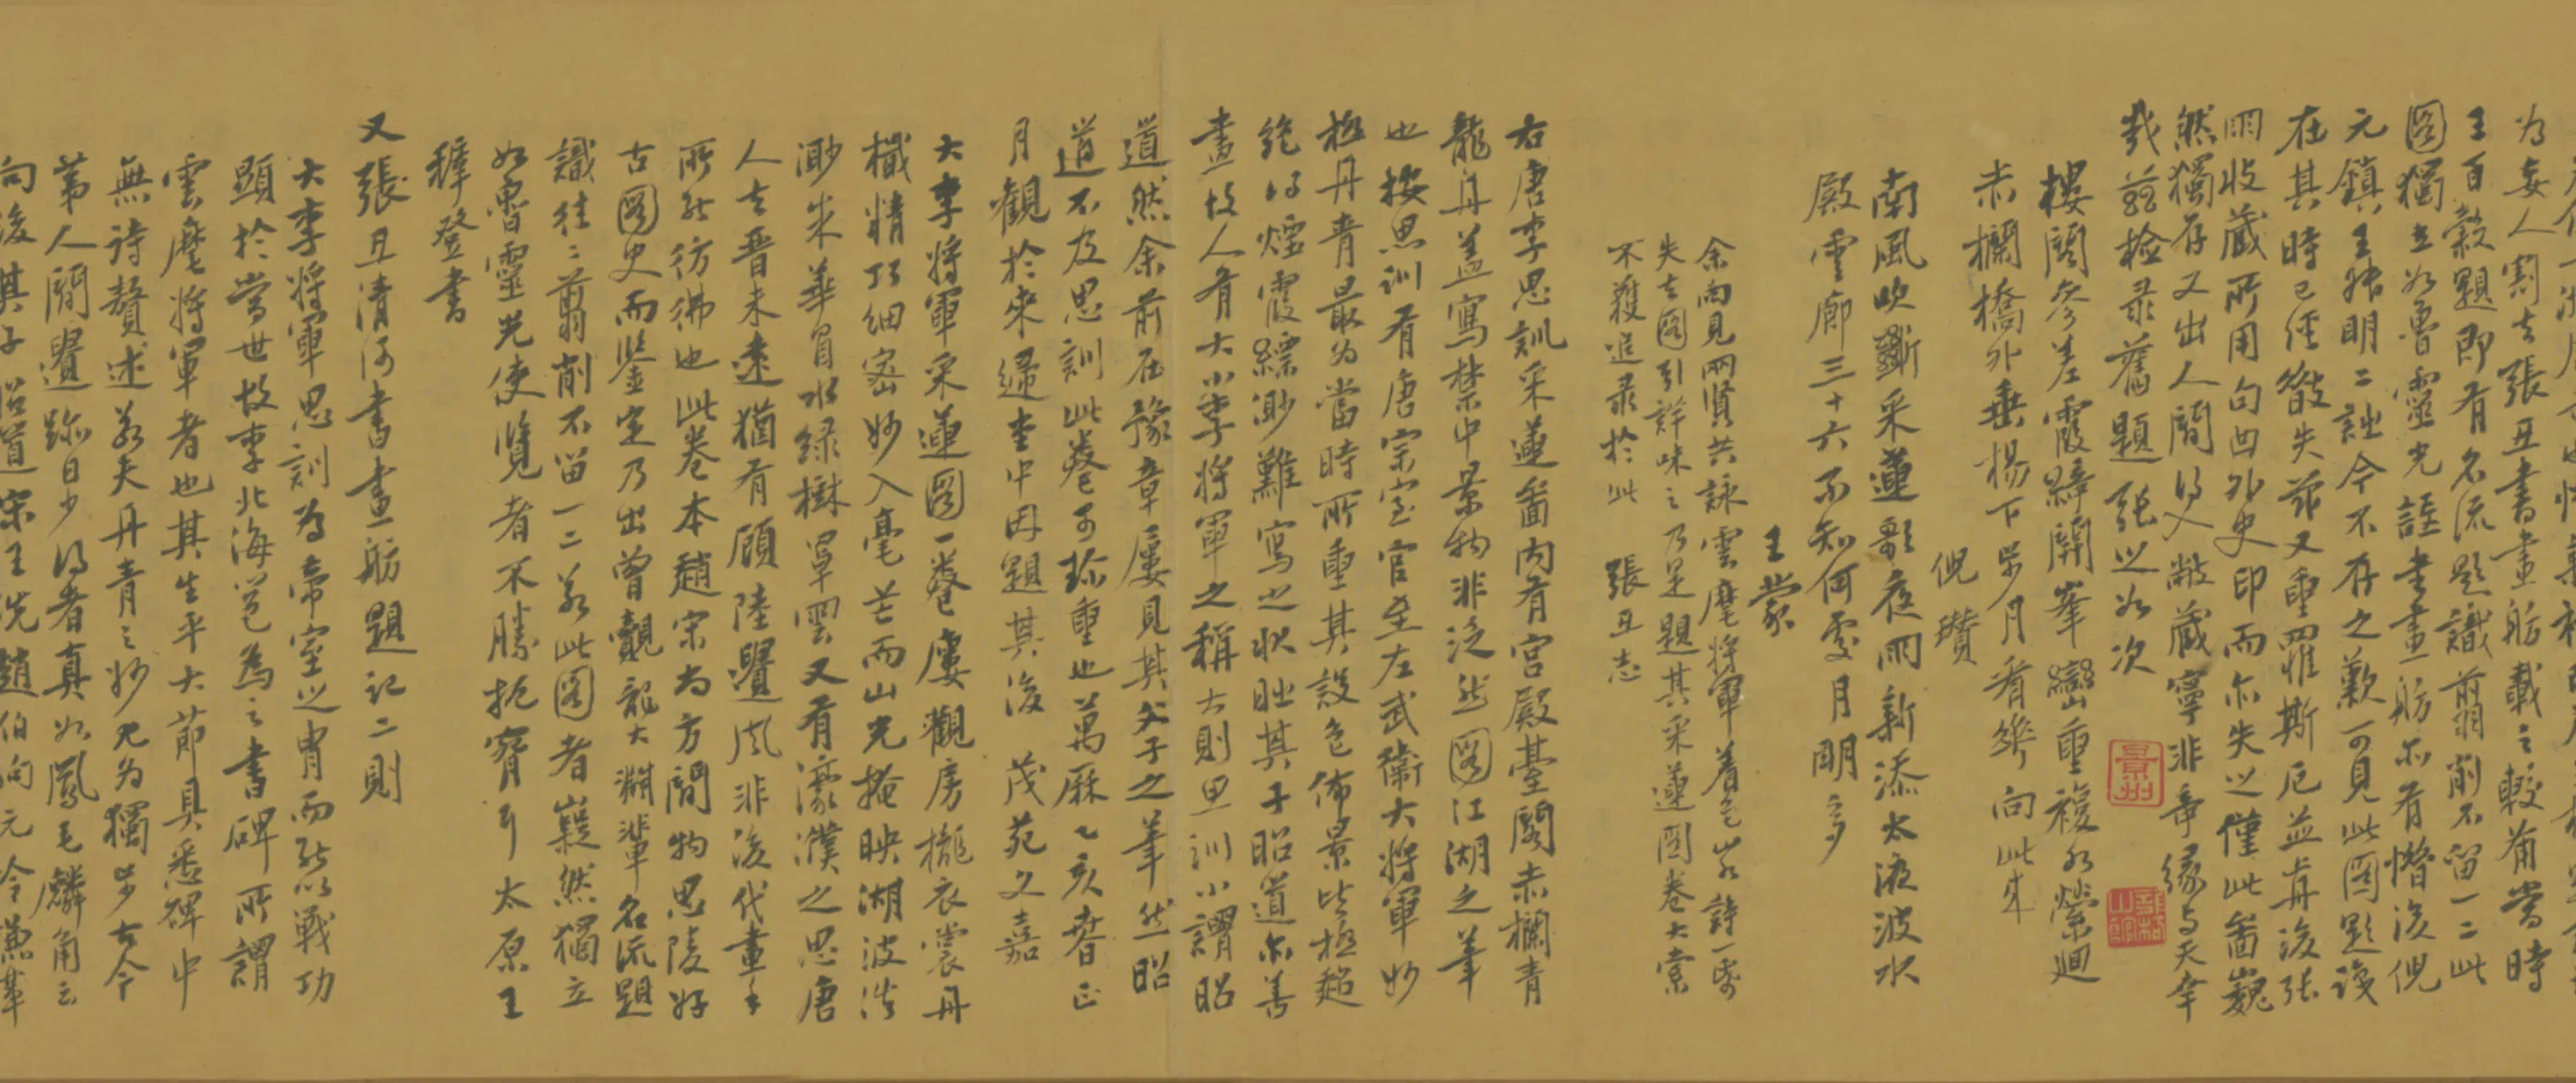 為妄人割去張丑書畫舫載之較詳當時
王百穀題即有名流題識翦削不留一二此
圖獨立如魯靈光語書畫舫亦有惜後倪
元鎮王叔明二詠今不存之歎可見此圖題識
在其時已經散失茲又重罹斯厄並再後張
丑收藏所用句曲外史印而亦失之僅此畵巍
然獨存又出人間得入敝藏寧非奇緣與天幸
哉茲檢录舊題張之如次
景州
樓閣參差霞綺開峯巒重複水縈迴
赤欄橋外垂楊下步月看花向此來
倪瓚
南風吹斷采蓮歌夜雨新添太液波水
殿雲廊三十六不知何處月明多
王蒙
余向見兩賢共詠雲麾將軍着色山水詩一帋
失去圖引詳味之乃是題其采蓮圖卷大索
不獲追录於此 張丑志
右唐李思訓采蓮畵內有宮殿臺閣赤欄青
龍舟蓋寫禁中景物非泛然圖江湖之筆
也按思訓有唐宗室官至左武衛大將軍妙
極丹青最為當時所重其設色佈景皆極超
絕得煙霞縹渺難寫之狀此其子昭道亦善
畫故人有大小李將軍之稱大則思訓小謂昭
道然余前在豫章屢見其父子之筆然昭
道不及思訓此卷可珍重也萬厤乙亥春正
月觀於來歸堂中因題其後 茂苑文嘉
大李將軍采蓮圖一卷屢觀房櫳衣裳丹
檝精巧細密妙入毫芒而山光掩映湖波浩
渺朱華冒水綠樹罩雲又有濠濮之思唐
人去晉未遠猶有顧陸遺風非後代畫手
所能彷彿也此卷本趙宋尚方間物思陵好
古圖史而鑒定乃出曾覿龍大淵輩名流題
識往往翦削不留一二若此圖者嶷然獨立
如魯靈光使覽者不勝抱寶弓太原王
穉登書
又張丑清河書畫舫題記二則
大李將軍思訓為帝室之胄而能以戰功
顯於當世故李北海邕為之書碑所謂
雲麾將軍者也其生平大節具悉碑中
無詩贅述若夫丹青之妙尤為獨步古今
第人間遺跡日少得者真如鳳毛麟角云
向後其子昭道宋王詵趙伯駒元令兼輩